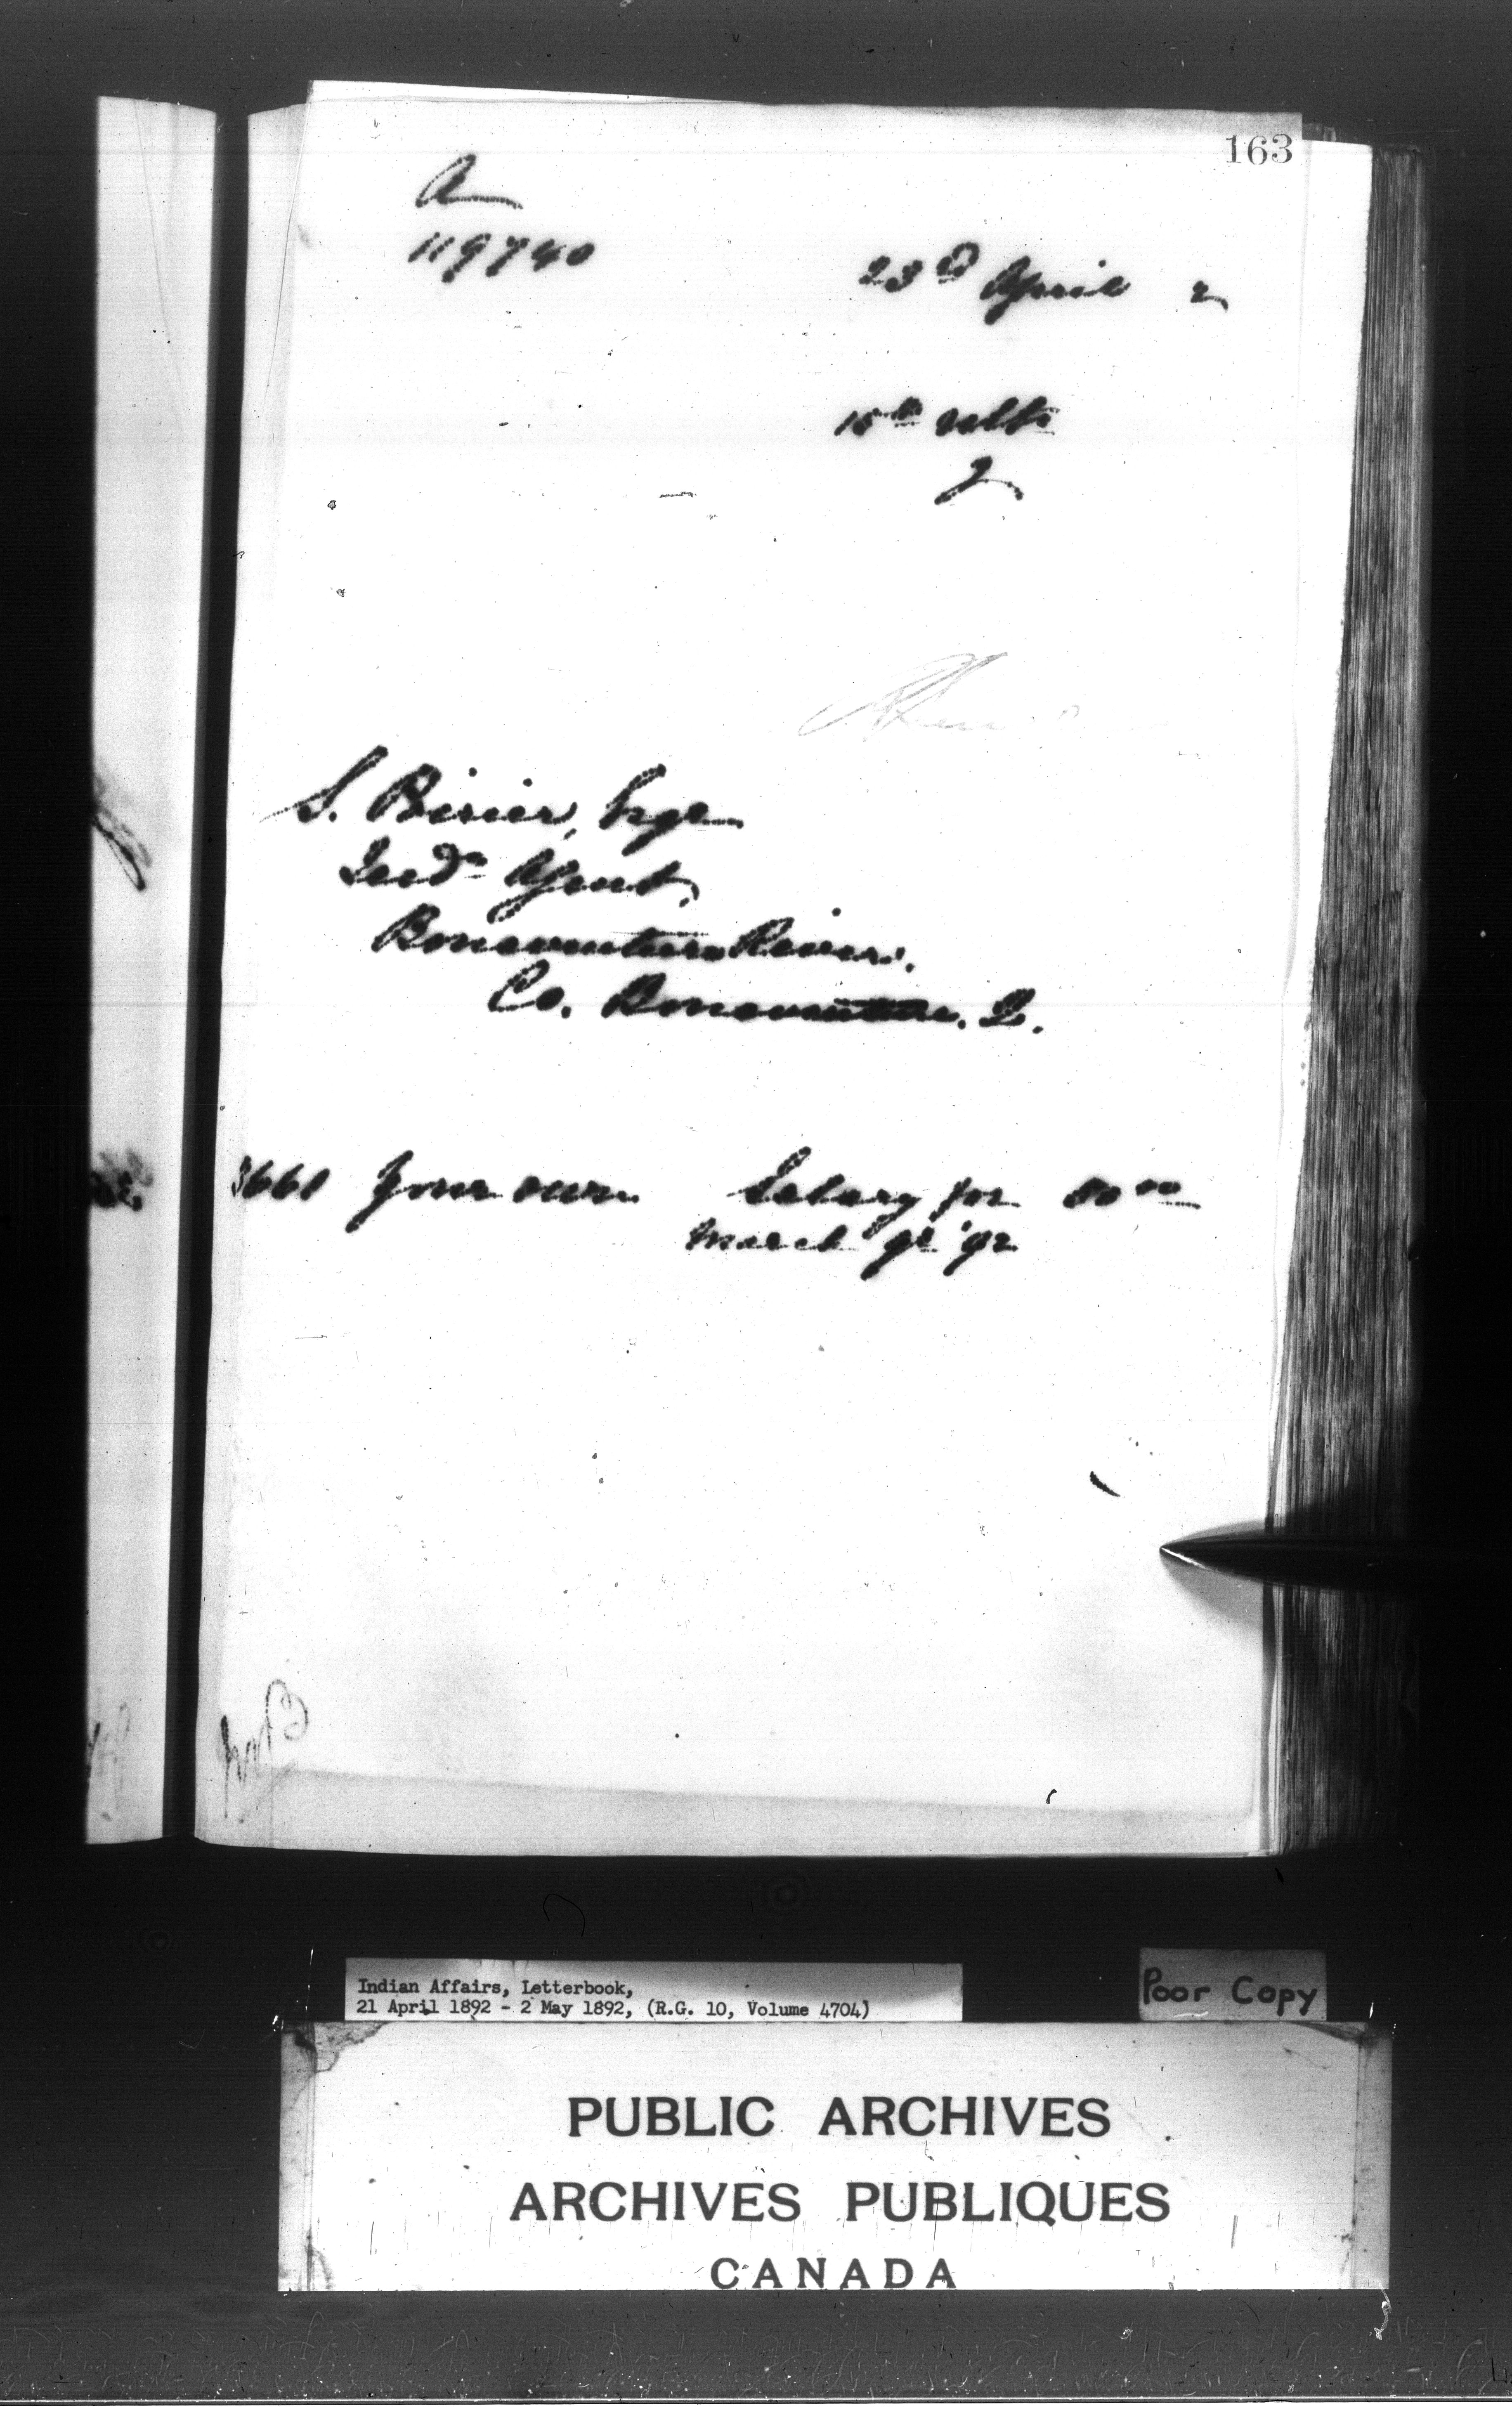 163
A
119740
23d April 2
15th ulto
S. Poirier, Esqr
Ind'n Agent,
Bonaventure River,
Co. Bonaventure. Q.
3661 Your own Salary for 50 00
March qr '92
Indian Affairs, Letterbook,
21 April 1892 - 2 May 1892, (R.G. 10, Volume 4704)
Poor Copy
PUBLIC ARCHIVES
ARCHIVES PUBLIQUES
CANADA